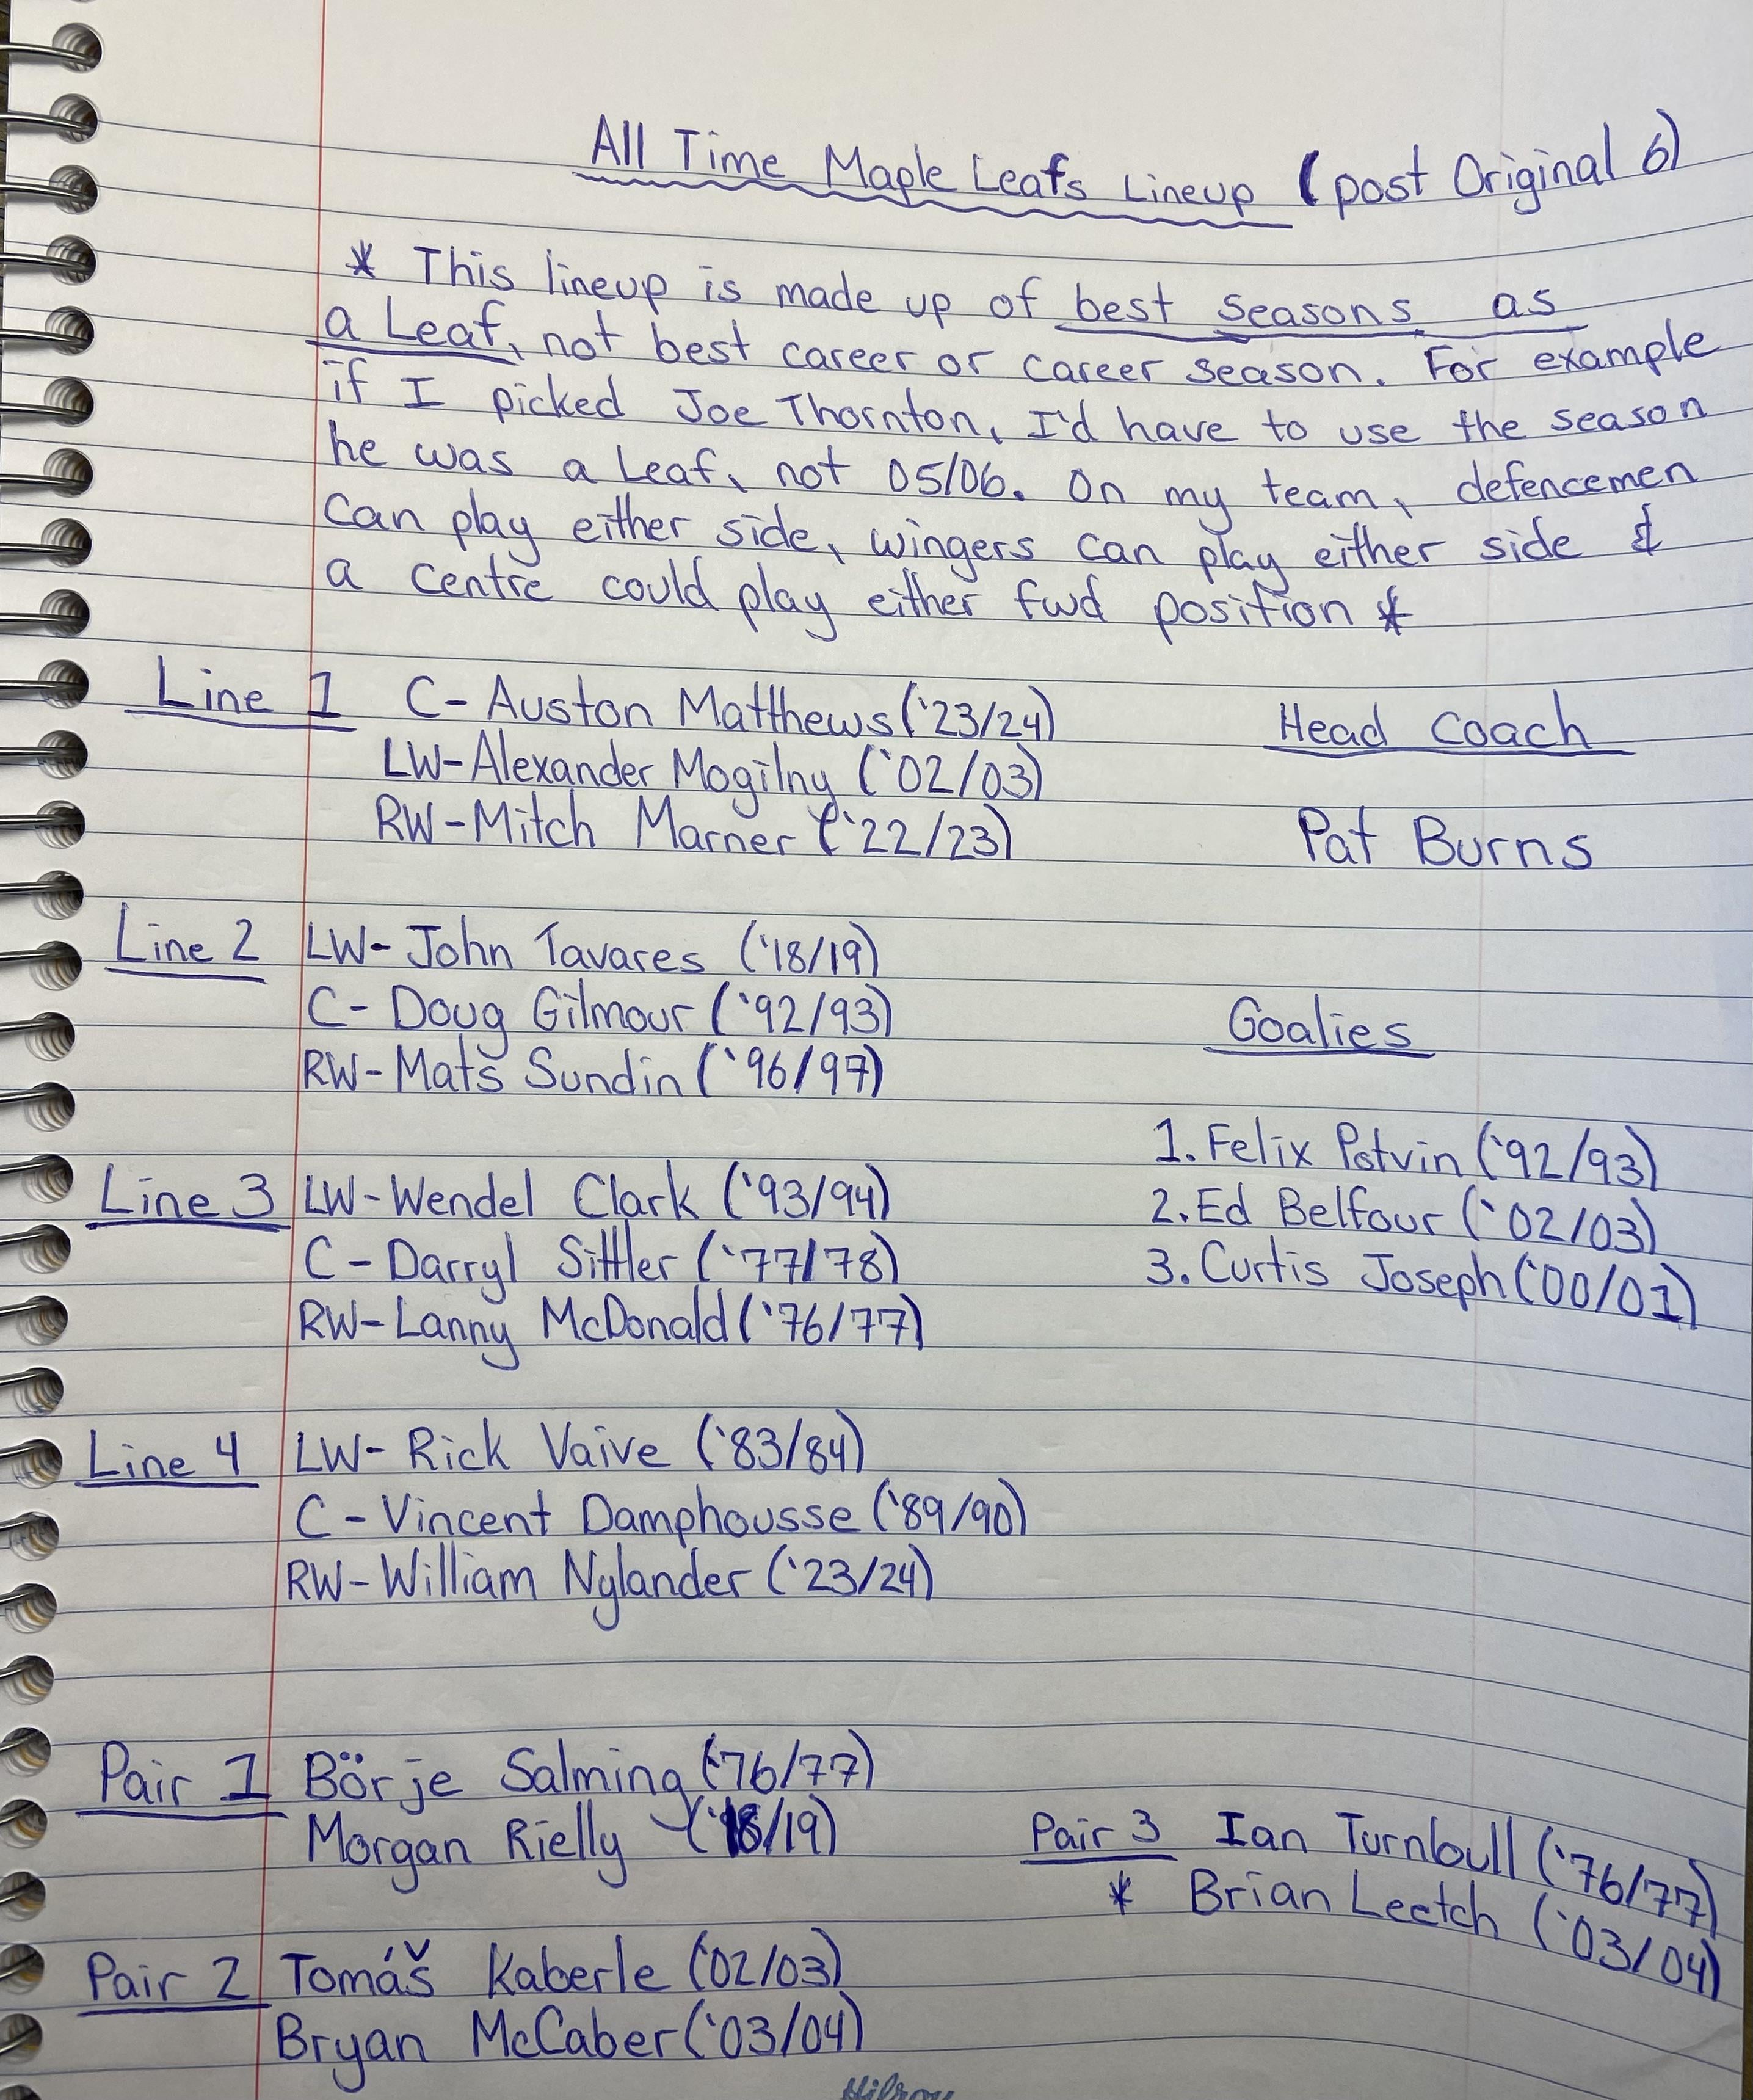 All Time Maple Leafs Lineup (post Original 6)
* This lineup is made up of best seasons as
a Leaf, not best career or career season. For example
if I picked Joe Thornton, I'd have to use the season
he was a Leaf, not 05/06. On my team, defencemen
can play either side, wingers can play either side &
a centre could play either fwd position *
Line 1 C- Auston Matthews ('23/24)
LW-Alexander Mogilny ('02/03)
RW-Mitch Marner ('22/23)
Head Coach
Pat Burns
Line 2 LW- John Tavares ('18/19)
C- Doug Gilmour ('92/93)
RW-Mats Sundin ('96/97)
Line 3 LW-Wendel Clark ('93/94)
C-Darryl Sittler ('77/78)
RW-Lanny McDonald ('76/77)
Goalies
1. Felix Potvin ('92/93)
2. Ed Belfour ('02/03)
3. Curtis Joseph ('00/01)
Line 4 LW- Rick Vaive ('83/84)
C-Vincent Damphousse ('89/90)
RW-William Nylander ('23/24)
Pair 1 Börje Salming ('76/77)
Morgan Rielly ('18/19)
Pair 2 Tomáš Kaberle ('02/03)
Bryan McCaber ('03/04)
Pair 3 Ian Turnbull ('76/77)
* Brian Leetch ('03/04)
Hilroy